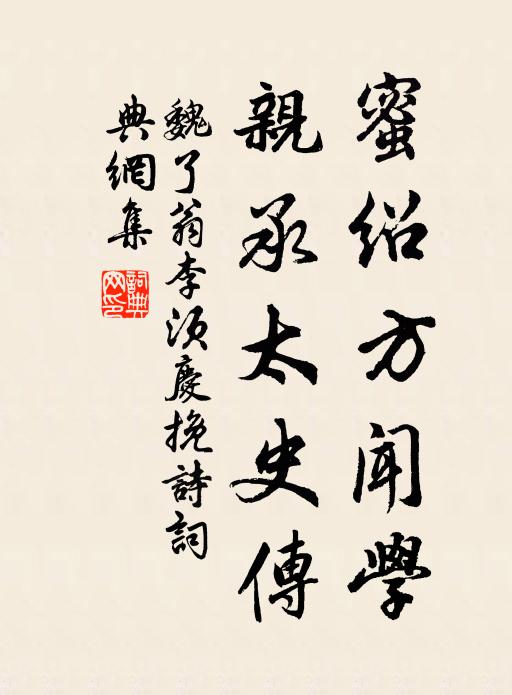 蜜绍方闻學
親承太史傳
魏了翁李湏慶挽詩詞
典網集
詞典網印